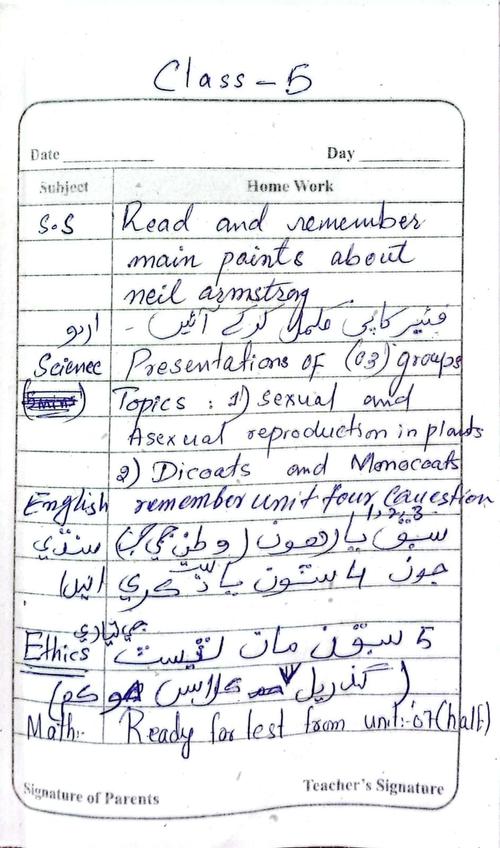 Class - 5
Date Day
Subject Home Work
S.S Read and remember
main points about
neil armstrong
اردو فئیر کاپی مکمل کرکے آئیں -
Science Presentations of (03) groups
Topics : 1) Sexual and
Asexual reproduction in plants
2) Dicoats and Monocoats
English remember unit four Question
1,2,3
سنڌي سبق يارهون (وطن جي
جون 4 سٽون ياد ڪري اچن)
جي تياري
Ethics 5 سبقن مان ٽيسٽ
گذريل ڪلاس
Math:- Ready for test from unit:- 07 (half)
Signature of Parents Teacher's Signature